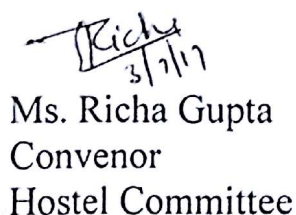 Richa
3/7/17
Ms. Richa Gupta
Convenor
Hostel Committee